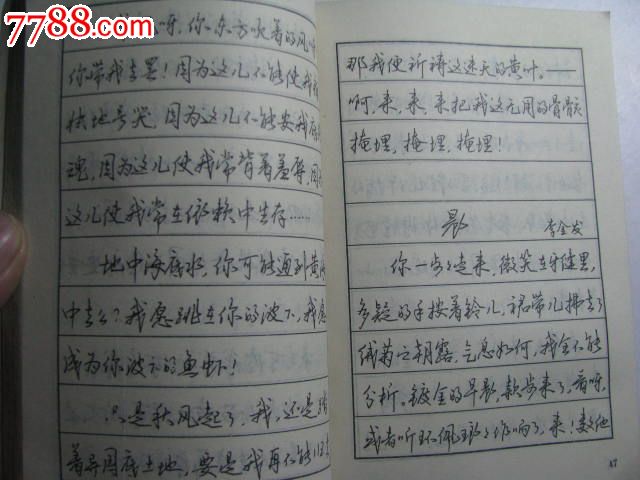 7788.com
呀,你东方吹着的风
你带我去罢!因为这儿不能使我
扶地号哭,因为这儿不能安我
魂,因为这儿使我常背着羞辱,因
这儿使我常在依赖中生存……
地中海底水,你可能通到黄
中去么?我愿跳在你的波下,我愿
成为你波下的鱼虾!
只是秋风起了,我,还是
着异国底土地,要是我再不能归
那我便祈祷这迷天的黄叶。——
啊,来,来,来把我这无用的骨骸
掩埋,掩埋,掩埋!
晨 李金发
你一步之走来,微笑在牙缝里,
多疑的手按着铃儿,裙带儿拂去了
绒菊之朝露,气息如何,我全不能
分析。镀金的早晨,款步来了,看呀,
或者听环佩琅之作响了,来!数他
47